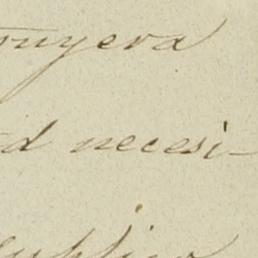 ruyera
d necesi-
suplica